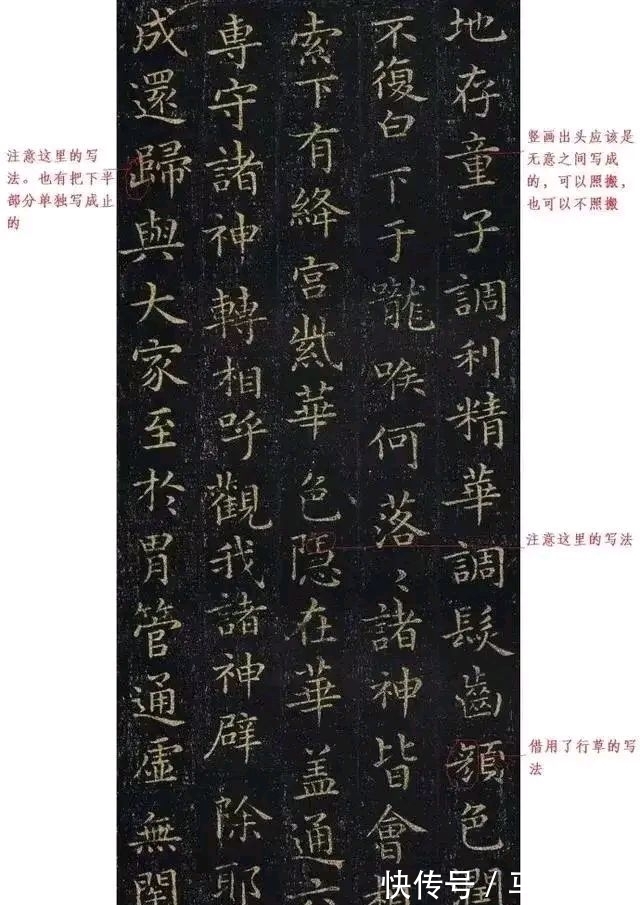 地存童子調利精華調髮齒顏色潤
不復白下于嚨喉何落〻諸神皆會
索下有絳宮紫華色隱在華蓋通六
專守諸神轉相呼觀我諸神辟除耶
成還歸與大家至於胃管通虛無閉
竖画出头应该是
无意之间写成
的，可以照搬，
也可以不照搬
注意这里的写法
借用了行草的写
法
注意这里的写
法。也有把下半
部分单独写成止
的
快传号／